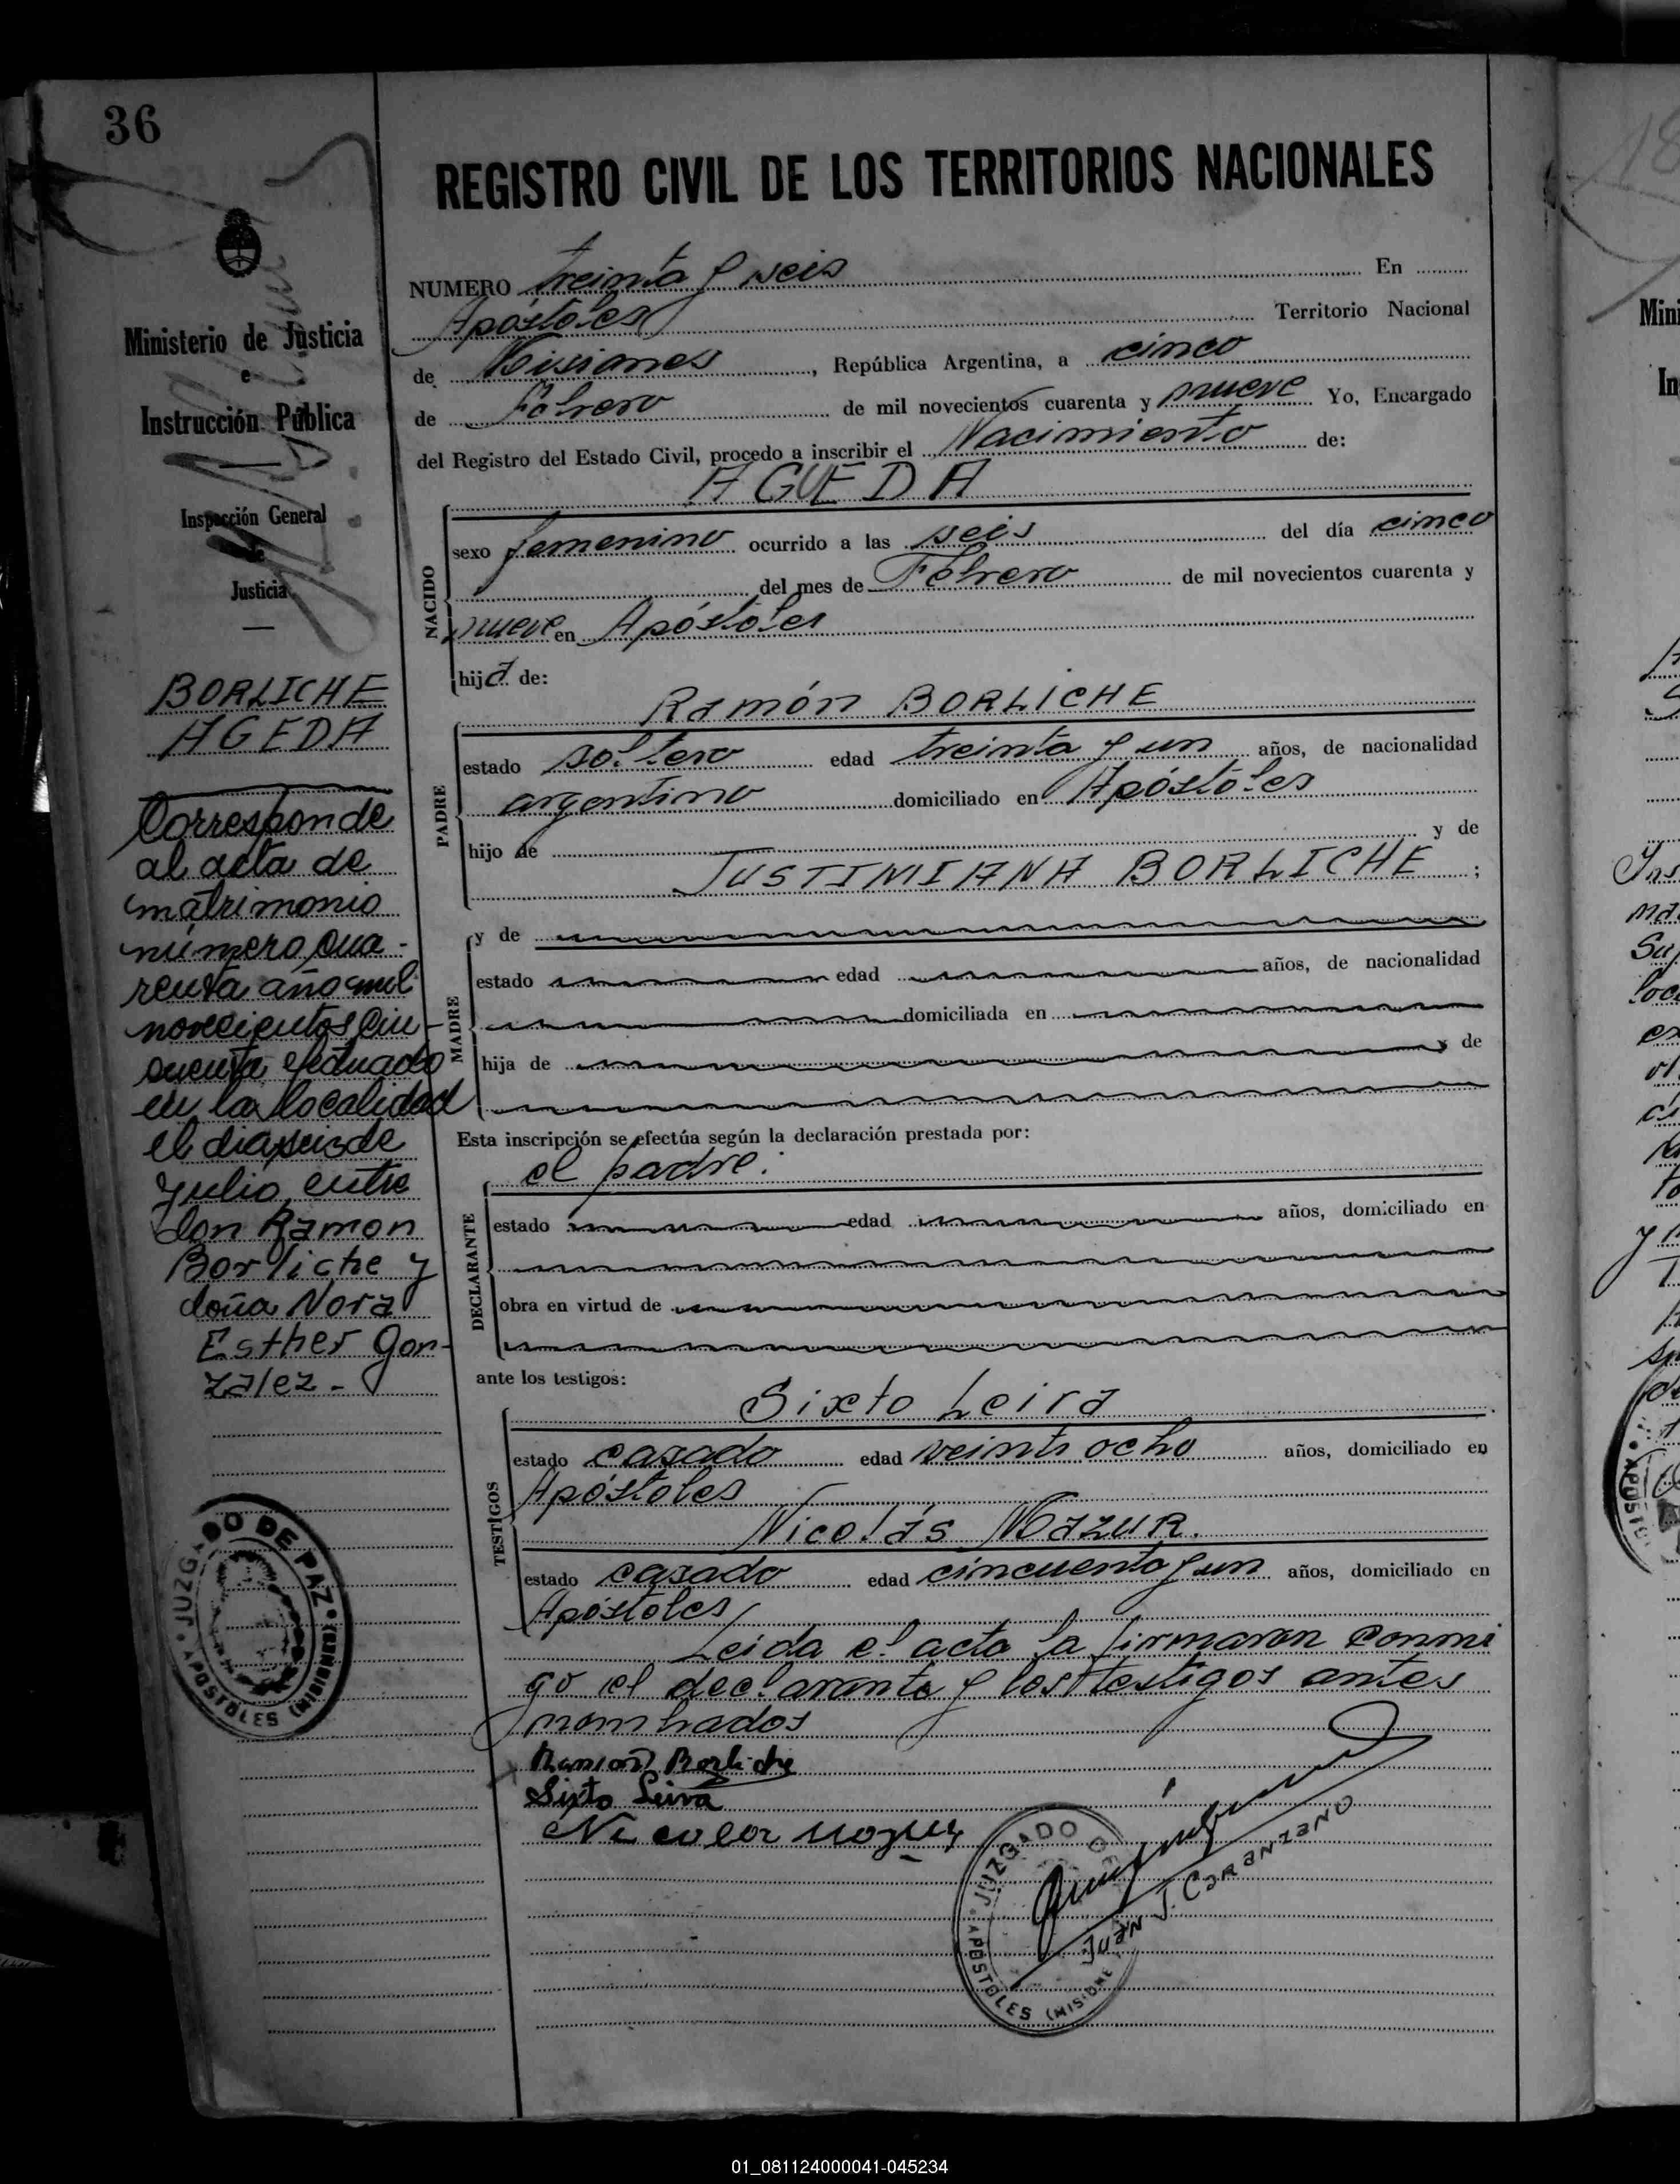 36
REGISTRO CIVIL DE LOS TERRITORIOS NACIONALES
Ministerio de Justicia
e
Instrucción Pública
Inspección General
de
Justicia
BORLICHE
AGEDA
Corresponde
al acta de
matrimonio
número cua-
renta año mil
novecientos cin-
cuenta efectuado
en la localidad
el dia seis de
Julio, entre
don Ramon
Borliche y
doña Nora
Esther Gon-
zalez.-
JUZGADO DE PAZ
APOSTOLES (MISIONES)
NUMERO treinta y seis En
Apóstoles Territorio Nacional
de Misiones, República Argentina, a cinco
de Febrero de mil novecientos cuarenta y nueve Yo, Encargado
del Registro del Estado Civil, procedo a inscribir el Nacimiento de:
AGUEDA
NACIDO
sexo femenino ocurrido a las seis del día cinco
del mes de Febrero de mil novecientos cuarenta y
nueve en Apóstoles
hija de:
Ramón BORLICHE
PADRE
estado soltero edad treinta y un años, de nacionalidad
argentino domiciliado en Apóstoles
hijo de y de
JUSTINIANA BORLICHE ;
MADRE
y de
estado edad años, de nacionalidad
domiciliada en
hija de y de
Esta inscripción se efectúa según la declaración prestada por:
el padre.
DECLARANTE
estado edad años, domiciliado en
obra en virtud de
ante los testigos:
Sixto Leira
TESTIGOS
estado casado edad veinti ocho años, domiciliado en
Apóstoles
Nicolás Mazur.
estado casado edad cincuenta y un años, domiciliado en
Apóstoles
Leida el acta la firmaron conmi
go el declarante y los testigos antes
nombrados
Ramon Borliche
Sixto Leiva
JUZGADO
APOSTOLES (MISIONE
Juan J. Caranzano
01_081124000041-045234